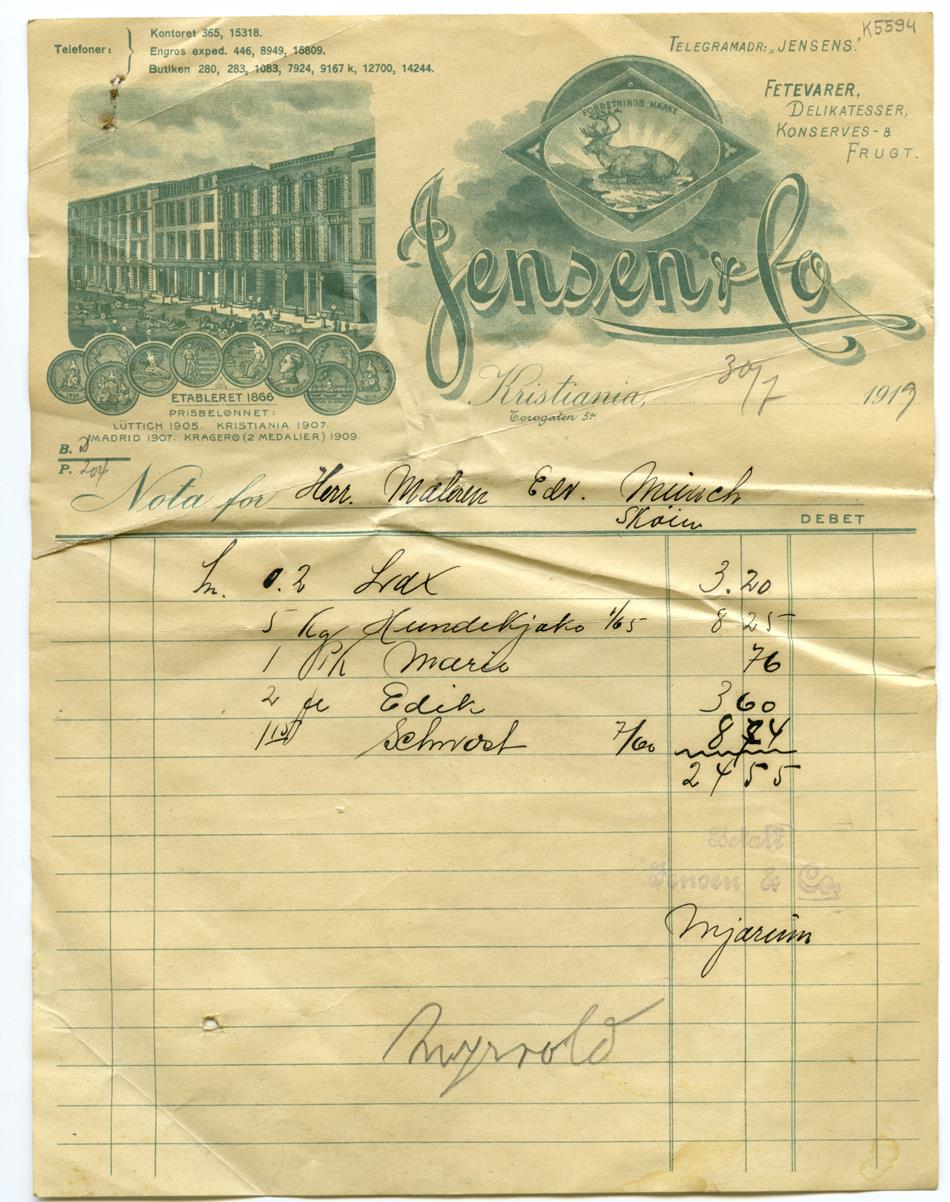 K5594
Telefoner:
Kontoret 365, 15318.
Engros exped. 446, 8949, 15809.
Butiken 280, 283, 1083, 7924, 9167 k, 12700, 14244.
TELEGRAMADR: „JENSENS."
FETEVARER,
DELIKATESSER,
KONSERVES- &
FRUGT.
FORRETNINGS MÆRKE
Jensen & Co
ETABLERET 1866
PRISBELØNNET:
LÜTTICH 1905. KRISTIANIA 1907.
MADRID 1907. KRAGERØ (2 MEDALIER) 1909
Kristiania, 30/7 1919
Torvgaten 5a
B.
P. 204
Nota for Herr. Maleren Edv. Münch
Skøien
DEBET
0.2 Lax 3.20
5 Kg Hundekjæks 1/65 8 25
1 Pk 76
2 fl Edik 3 60
7/60 8 74
24 55
Betalt
Jensen & Co.